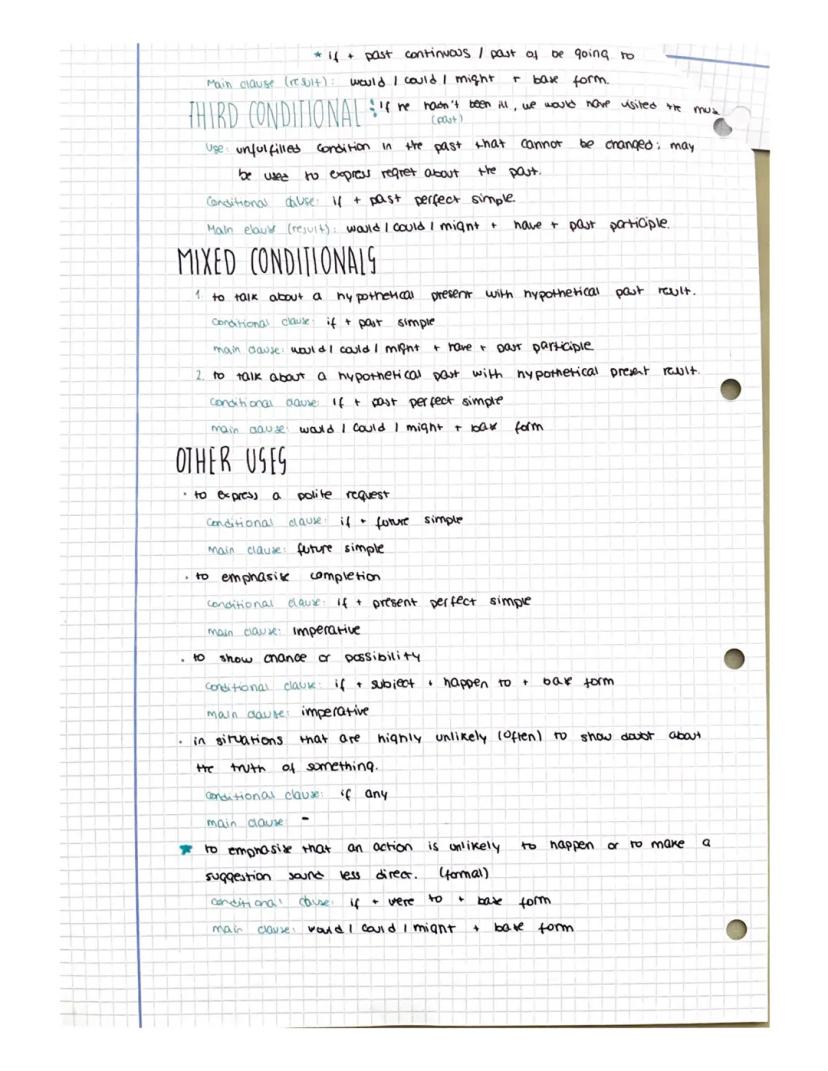 * if + past continuous / past of be going to
Main clause (result): would / could / might + base form.
THIRD CONDITIONAL: if he hadn't been ill, we would have visited the
(past)
Use: unfulfilled condition in the past that cannot be changed; may
be used to express regret about the past.
Conditional clause: if + past perfect simple.
Main clause (result): would / could / might + have + past participle.
MIXED CONDITIONALS
1. to talk about a hypothetical present with hypothetical past result.
Conditional clause: if + past simple
main clause: would / could / might + have + past participle
2. to talk about a hypothetical past with hypothetical present result.
Conditional clause: if + past perfect simple
main clause: would / could / might + base form
OTHER USES
· to express a polite request
Conditional clause: if + future simple
Main clause: future simple
· to emphasise completion
Conditional clause: if + present perfect simple
main clause: imperative
· to show chance or possibility
Conditional clause: if + subject + happen to + base form
main clause: imperative
· in situations that are highly unlikely (often) to show doubt about
the truth of something.
Conditional clause: if any
main clause -
* to emphasise that an action is unlikely to happen or to make a
suggestion sound less direct. (formal)
Conditional clause: if + were to + base form
main clause: would / could / might + base form